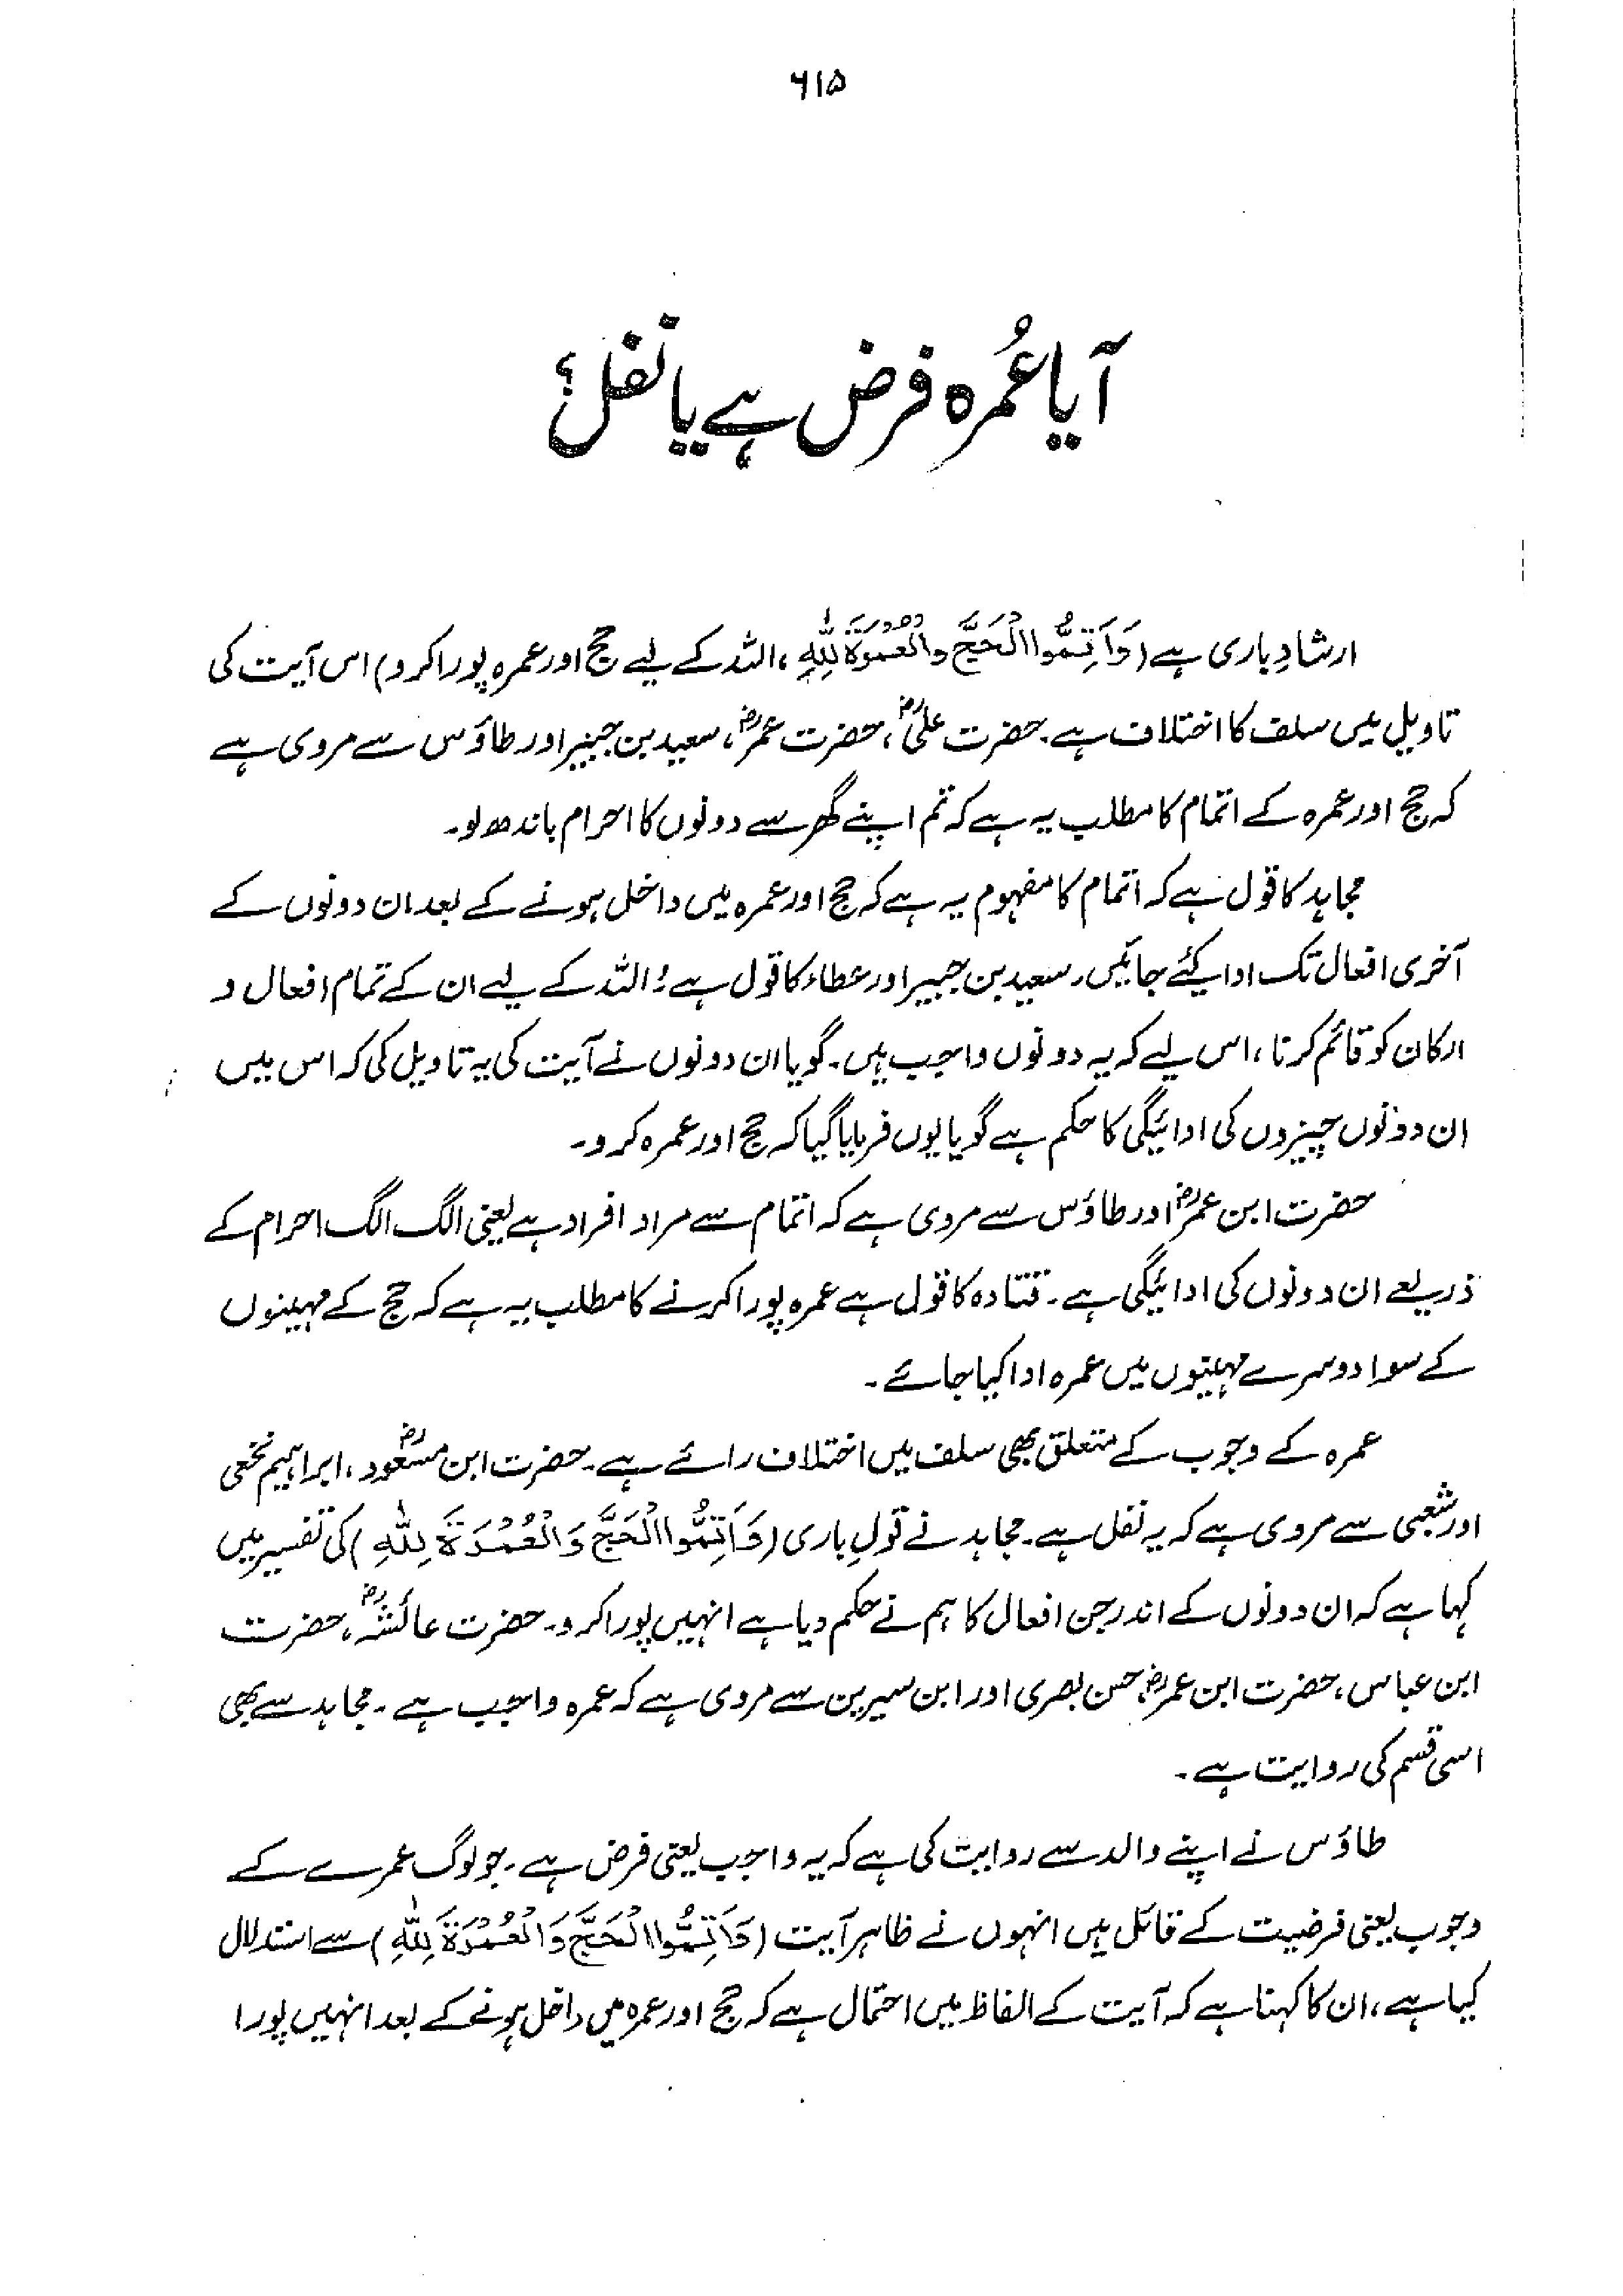 ۶۱۵
آیا عُمرہ فرض ہے یا نفل؟
ارشادِ باری ہے (وَاَتِمُّوا الْحَجَّ وَالْعُمْرَةَ لِلّٰهِ، اللہ کے لیے حج اور عمرہ پورا کرو) اس آیت کی
تاویل میں سلف کا اختلاف ہے۔ حضرت علیؓ، حضرت عمرؓ، سعید بن جبیر اور طاؤس سے مروی ہے
کہ حج اور عمرہ کے اتمام کا مطلب یہ ہے کہ تم اپنے گھر سے دونوں کا احرام باندھ لو۔
مجاہد کا قول ہے کہ اتمام کا مفہوم یہ ہے کہ حج اور عمرہ میں داخل ہونے کے بعد ان دونوں کے
آخری افعال تک ادا کیئے جائیں۔ سعید بن جبیر اور عطاء کا قول ہے؛ اللہ کے لیے ان کے تمام افعال و
ارکان کو قائم کرنا، اس لیے کہ یہ دونوں واجب ہیں۔ گویا ان دونوں نے آیت کی یہ تاویل کی کہ اس میں
ان دونوں چیزوں کی ادائیگی کا حکم ہے گویا یوں فرمایا گیا کہ حج اور عمرہ کرو۔
حضرت ابن عمرؓ اور طاؤس سے مروی ہے کہ اتمام سے مراد افراد ہے یعنی الگ الگ احرام کے
ذریعے ان دونوں کی ادائیگی ہے۔ قتادہ کا قول ہے عمرہ پورا کرنے کا مطلب یہ ہے کہ حج کے مہینوں
کے سوا دوسرے مہینوں میں عمرہ ادا کیا جائے۔
عمرہ کے وجوب کے متعلق بھی سلف میں اختلاف رائے ہے۔ حضرت ابن مسعودؓ، ابراہیم نخعی
اور شعبی سے مروی ہے کہ یہ نفل ہے۔ مجاہد نے قولِ باری (وَاَتِمُّوا الْحَجَّ وَالْعُمْرَةَ لِلّٰهِ) کی تفسیر میں
کہا ہے کہ ان دونوں کے اندر جن افعال کا ہم نے حکم دیا ہے انہیں پورا کرو۔ حضرت عائشہؓ، حضرت
ابن عباس، حضرت ابن عمرؓ، حسن بصری اور ابن سیرین سے مروی ہے کہ عمرہ واجب ہے۔ مجاہد سے بھی
اسی قسم کی روایت ہے۔
طاؤس نے اپنے والد سے روایت کی ہے کہ یہ واجب یعنی فرض ہے۔ جو لوگ عمرے کے
وجوب یعنی فرضیت کے قائل ہیں انہوں نے ظاہر آیت (وَاَتِمُّوا الْحَجَّ وَالْعُمْرَةَ لِلّٰهِ) سے استدلال
کیا ہے، ان کا کہنا ہے کہ آیت کے الفاظ میں احتمال ہے کہ حج اور عمرہ میں داخل ہونے کے بعد انہیں پورا